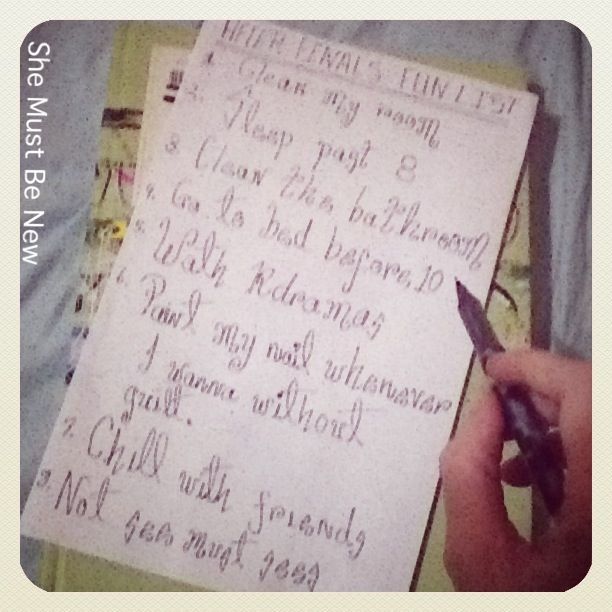 She Must Be New
AFTER FINALS FUN LIST
1. Clean my room
2. Sleep past 8
3. Clean the bathroom
4. Go to bed before 10
5. Watch Kdramas
6. Paint my nail whenever
I wanna without
guilt.
7. Chill with friends
8. Not